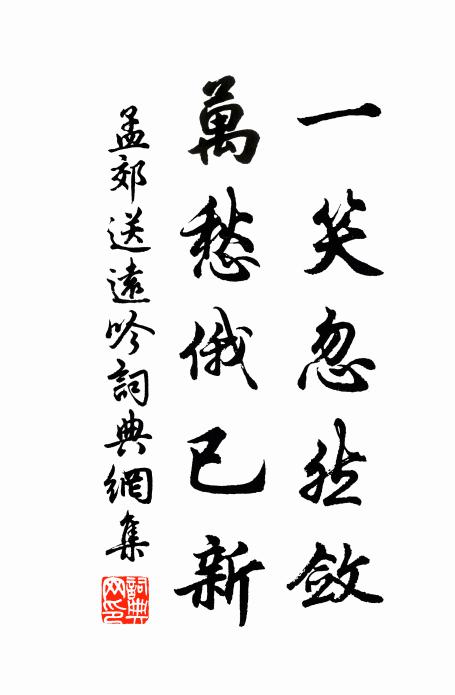 一笑忽然斂
萬愁俄已新
孟郊送遠吟詞典網集
詞典網印